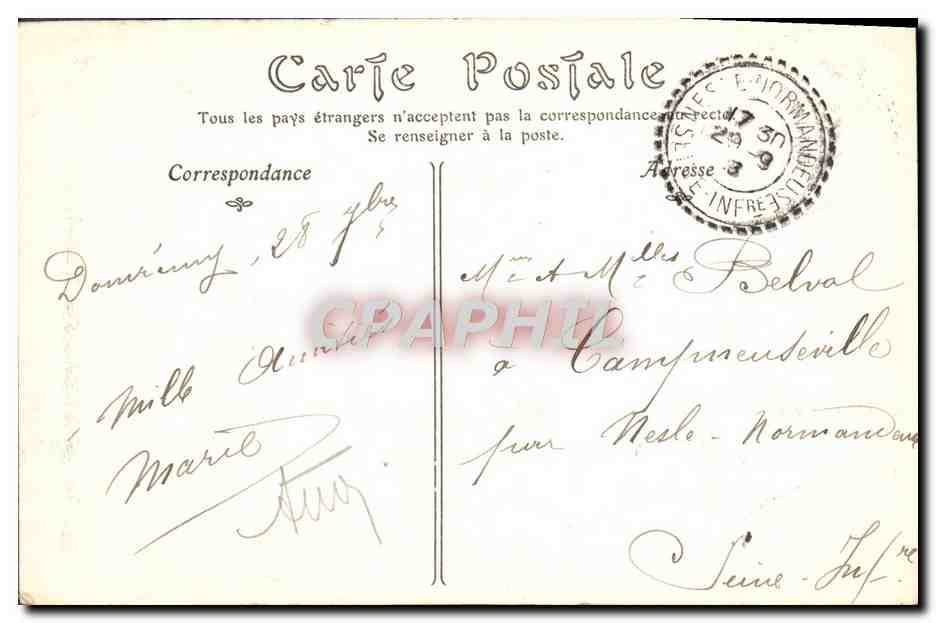 Carte Postale
Tous les pays étrangers n'acceptent pas la correspondance au recto
Se renseigner à la poste.
Correspondance
Adresse
NESLE-NORMANDEUSE
17 30
29 9
8
SEINE-INFRE
Domrémy, 28 7bre
Mille Amitiés
Marie
Mme & Mlles Belval
à Campneuseville
par Nesle-Normandeuse
Seine-Infre
CPAPHIL